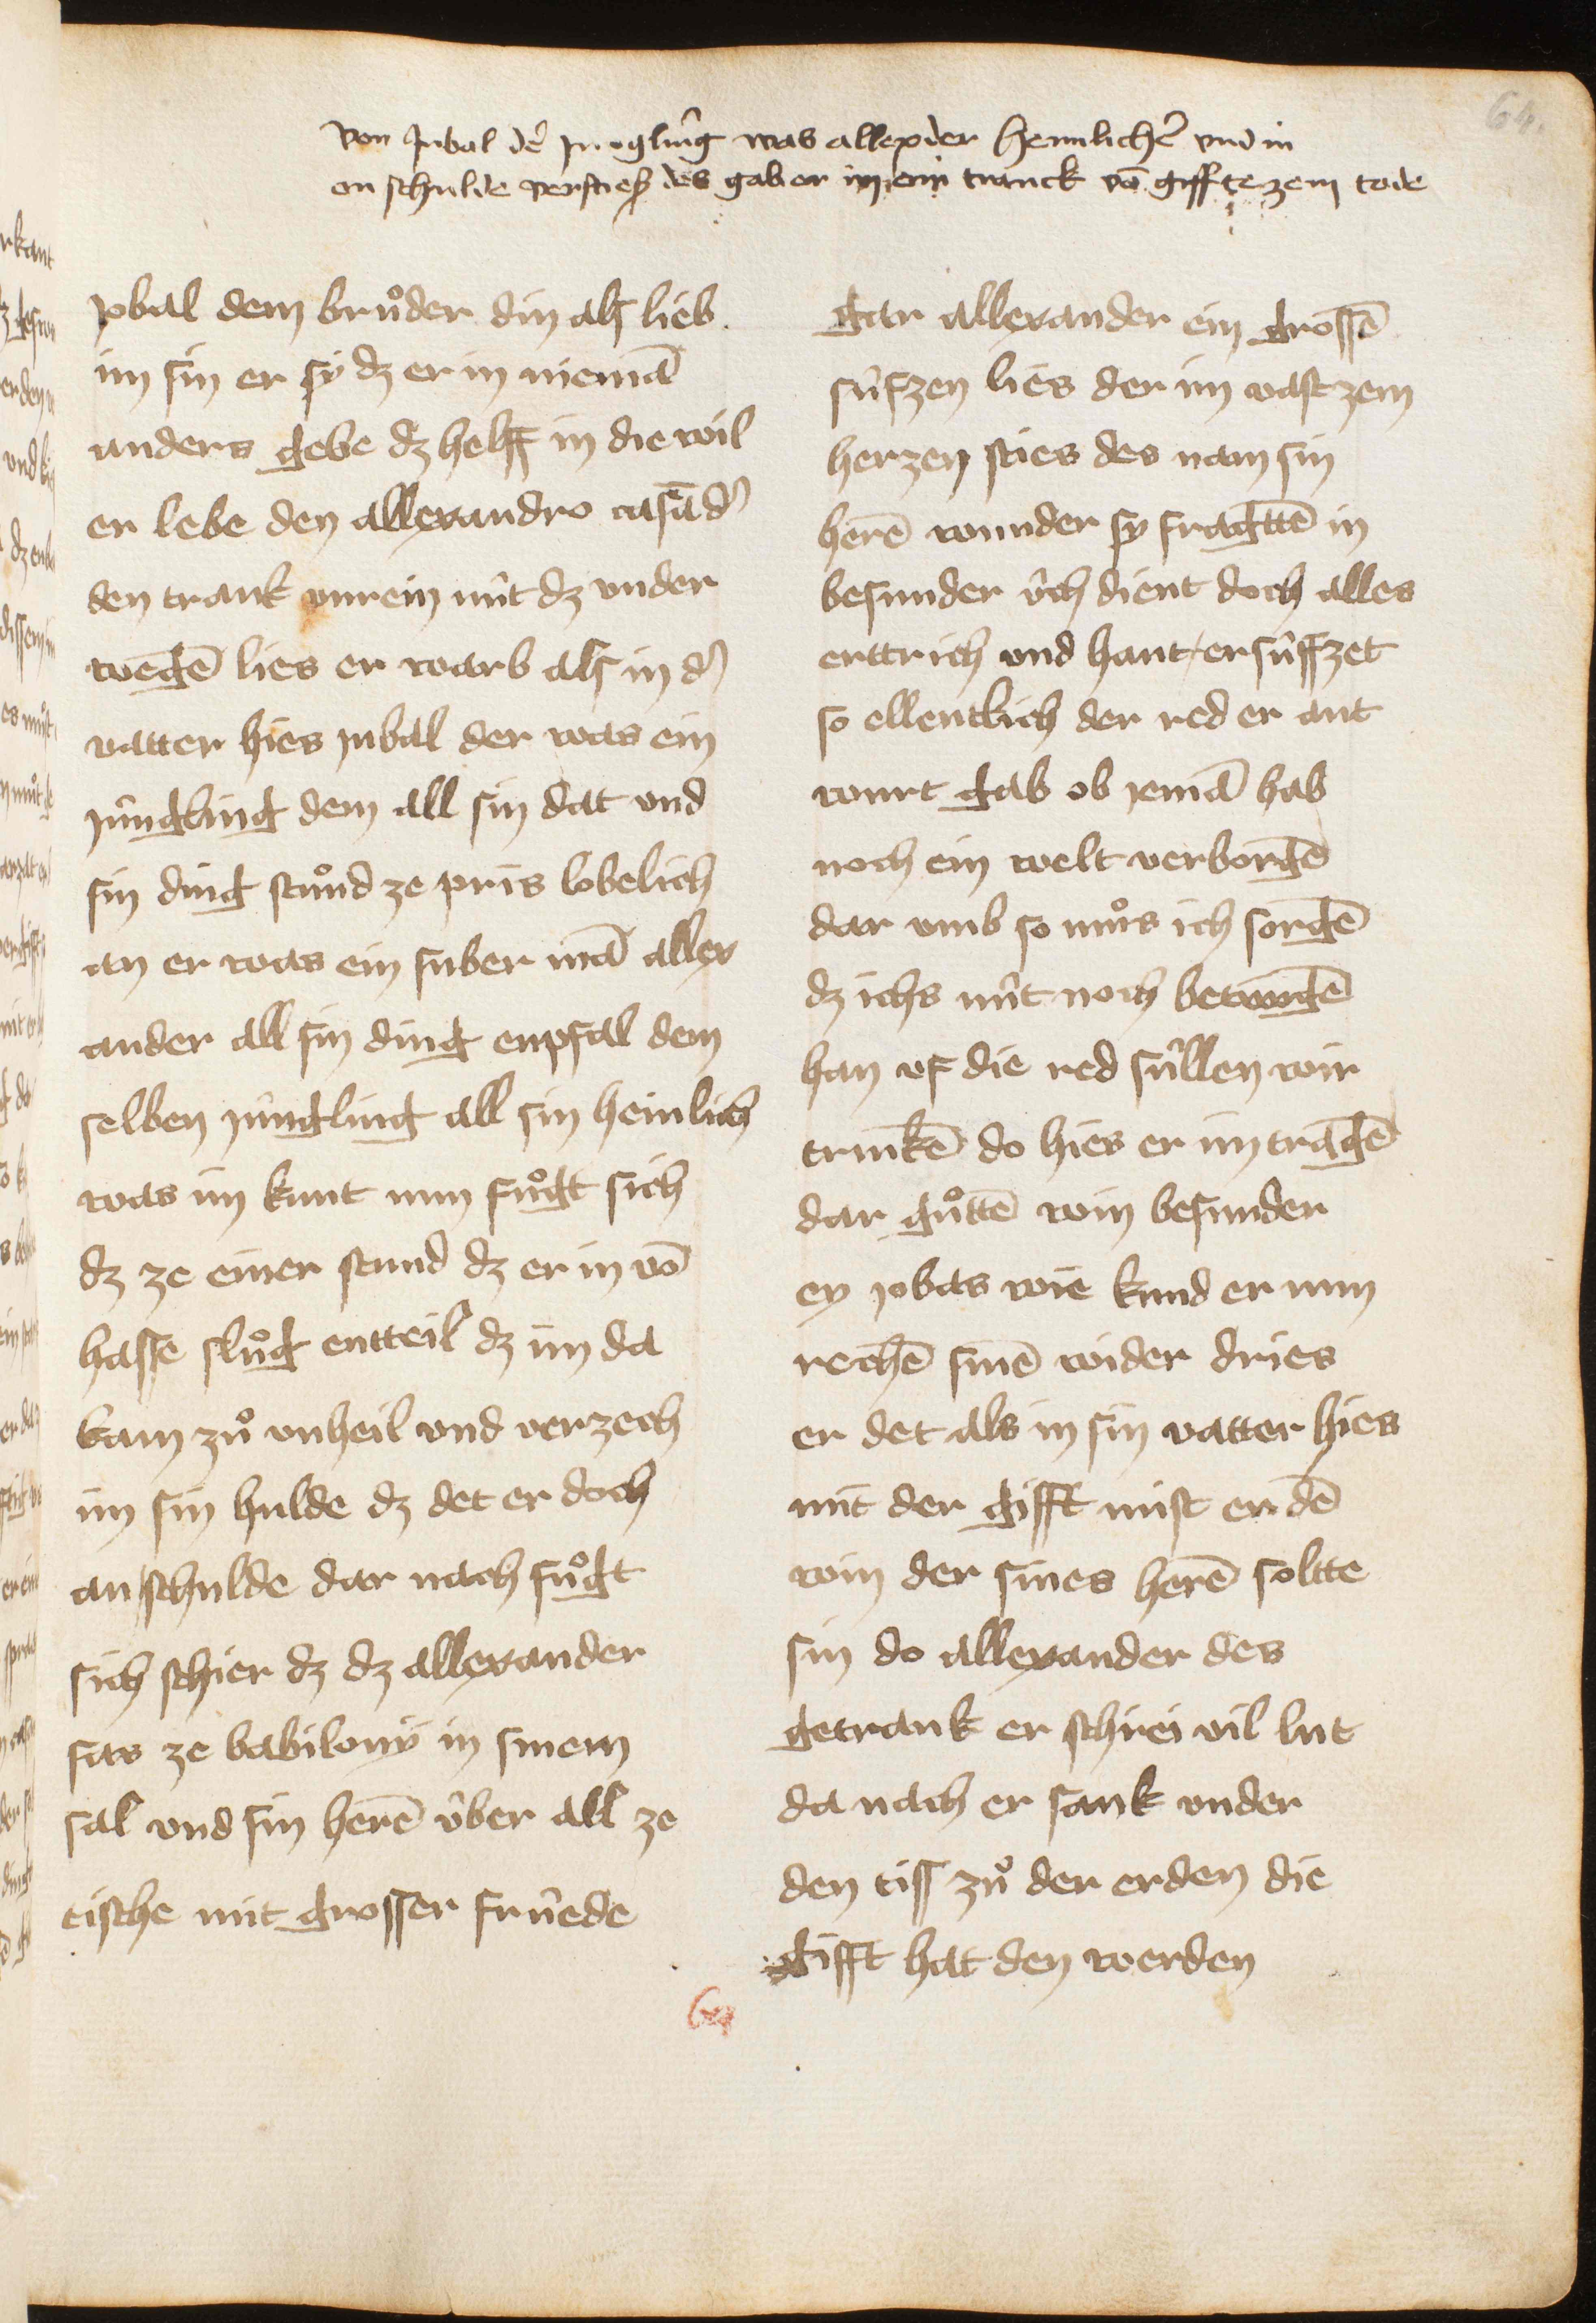 64.
von Jubal dẽ jũgling was allexder heimlicher vnd in
on schulde verstieß des gab er im ein tranck võ giffte zem tode
jobal dem bruͦder din als lieb
im sin er sÿ dz er in niemã
anders gebe dz helff in die wil
er lebe den allexandro casãd'
den trank vnrein nût dz vnder
wegẽ lies er warb als in d'
vatter hies jubal der was ein
jûngling dem all sin dat vnd
sin ding stuͦnd ze pris lobelich
an er was ein suber mã allex
ander all sin ding enpfal dem
selben jûngling all sin heimlich
was im kunt nun fuͦgt sich
dz ze einer stund dz er in võ
hasse sluͦg entteil dz im da
kam zuͦ vnheil vnd verzech
im sin hulde dz det er doch
an schulde dar nach fuͦgt
sich schier dz dz allexander
sas ze babilonÿ in sinem
sal vnd sin herẽ ûber all ze
tische mit grosser frûede
gar allexander ein grossẽ
sûfzen lies der im vast zem
herzen sties des nam sin
herẽ wunder sy fragttẽ in
besunder ûch dient doch alles
erttrich vnd hant ersûffzet
so ellentlich der red er ant
wurt gab ob jemã hab
noch ein welt verborgẽ
dar vmb so muͦs ich sorgẽ
dz ichs nût noch betwngẽ
han vf die red sûllen wir
trinkẽ do hies er im tragẽ
dar guͦttẽ win besunder
ey jobas wie kund er nun
rechẽ sinẽ wider dries
er det als in sin vatter hies
mit der gifft mist er dẽ
win der sines herẽ soltte
sin do allexander des
getrank er schrei vil lut
da nach er sank vnder
den tiss zuͦ der erden die
gifft hat den werden
64